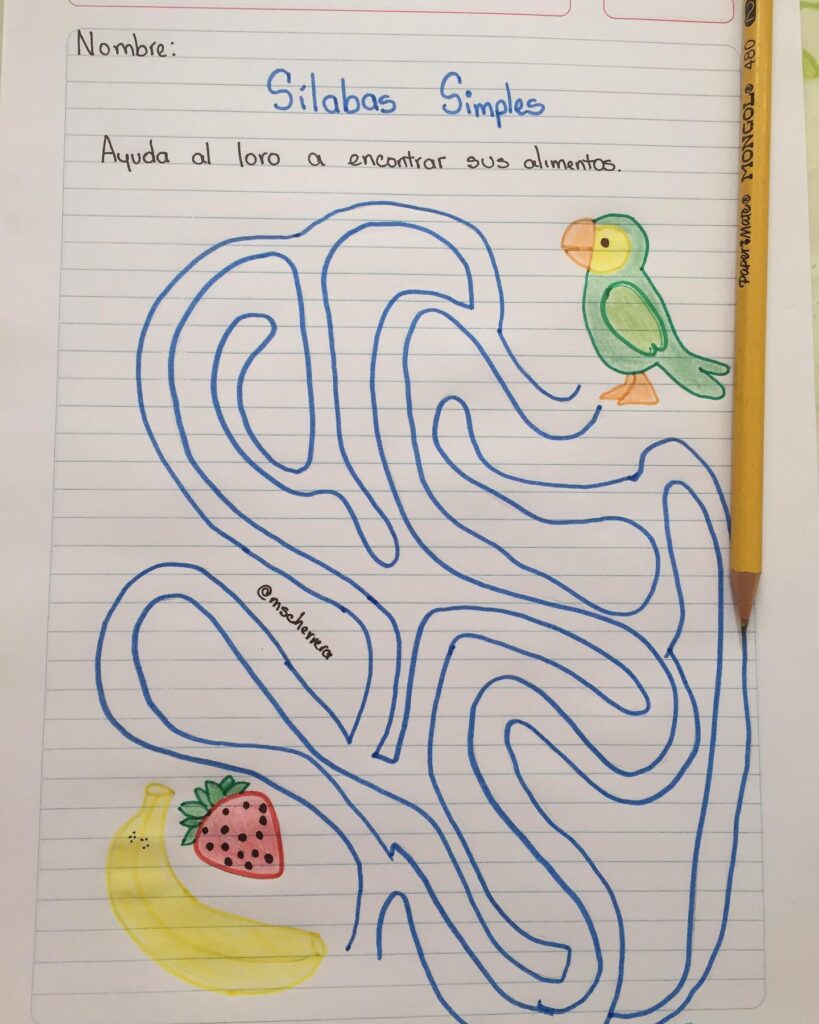 Nombre:
Sílabas Simples
Ayuda al loro a encontrar sus alimentos.
@mscherrera
Paper Mate® MONGOL® 480 2